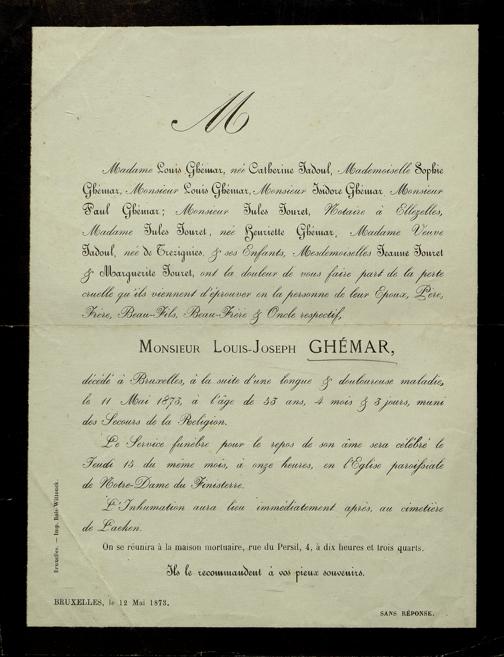 M
Madame Louis Ghémar, née Catherine Tadoul, Mademoiselle Sophie
Ghémar, Monsieur Louis Ghémar, Monsieur Isidore Ghémar Monsieur
Paul Ghémar; Monsieur Jules Jouret, Notaire à Ellezelles,
Madame Jules Jouret, née Henriette Ghémar; Madame Veuve
Tadoul, née de Trezignies, & ses Enfants, Mesdemoiselles Jeanne Jouret
& Marguerite Jouret, ont la douleur de vous faire part de la perte
cruelle qu'ils viennent d'éprouver en la personne de leur Epoux, Père,
Frère, Beau-Fils, Beau-Frère & Oncle respectif,
MONSIEUR LOUIS-JOSEPH GHÉMAR,
décédé à Bruxelles, à la suite d'une longue & douloureuse maladie,
le 11 Mai 1873, à l'âge de 53 ans, 4 mois & 3 jours, muni
des Secours de la Religion.
Le Service funèbre pour le repos de son âme sera célébré le
Jeudi 15 du même mois, à onze heures, en l'Eglise paroissiale
de Notre-Dame du Finisterre.
L'Inhumation aura lieu immédiatement après, au cimetière
de Laeken.
On se réunira à la maison mortuaire, rue du Persil, 4, à dix heures et trois quarts.
Ils le recommandent à vos pieux souvenirs.
BRUXELLES, le 12 Mai 1873.
SANS RÉPONSE.
Bruxelles. — Imp. Bols-Wittouck.